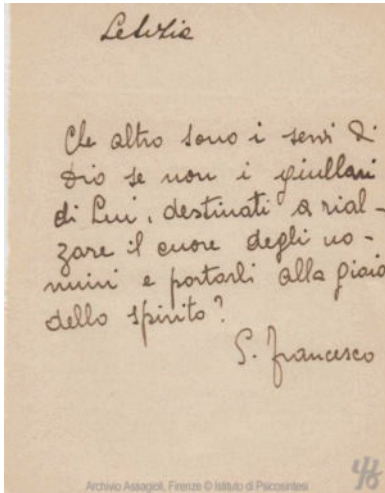 Letizia
Che altro sono i servi di
Dio se non i giullari
di Lui, destinati a rial-
zare il cuore degli uo-
mini e portarli alla gioia
dello spirito?
S. Francesco
Archivio Assagioli, Firenze © Istituto di Psicosintesi